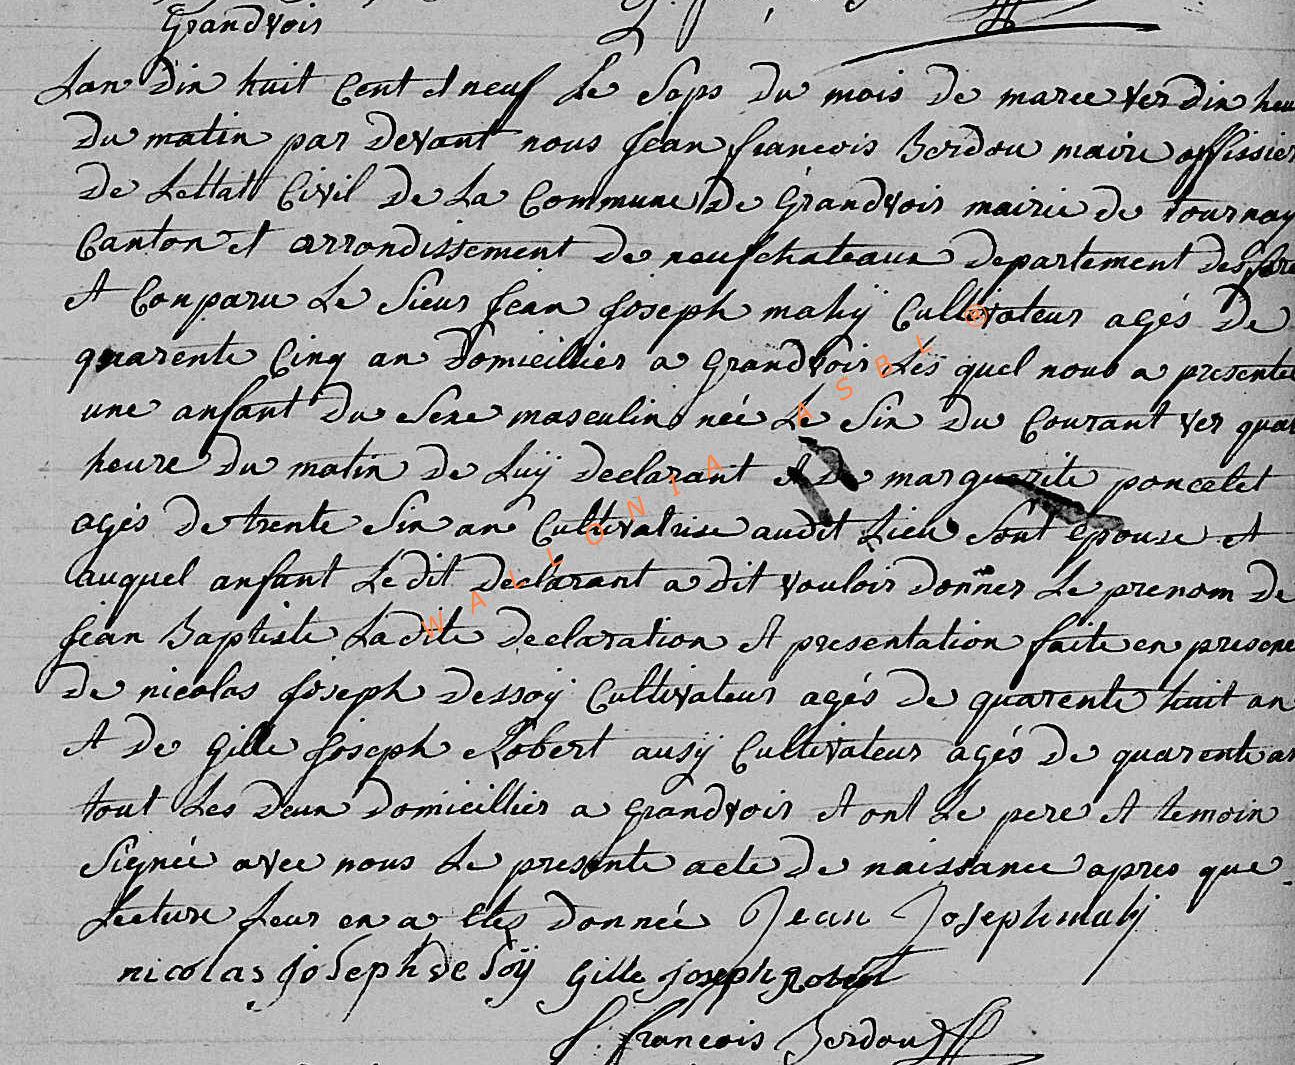 Grandvois
Lan dix huit Cent et neuf Le Seps du mois de marce ver dix heu
du matin par devant nous jean francois Berdou maire offissier
de Lettat Civil de La Commune de Grandvois mairie de tournay
Canton et arrondissement de neufchateaux departement des fore
et Conparu Le Sieur jean joseph mahÿ Cultivateur agés de
quarente Cinq an domicillier a grandvoir Les quel nous a presente
une anfant du Sexe masculin née Le Six du Courant ver quat
heure du matin de Luÿ declarant et de marguerite poncelet
agés de trente Six an Cultivatrise audit Lieu Sont epouse et
auquel anfant Ledit declarant a dit vouloir donner Le prenom de
jean Baptiste La dite declaration et presentation faite en presence
de nicolas joseph dessoÿ Cultivateur agés de quarente huit an
et de gille joseph Robert ausÿ Cultivateur agés de quarente an
tout Les deux domicillier a grandvoir et ont Le pere et temoin
Signée avec nous Le presente acte de naissance apres que
Lecture Leur en a etes donnée Jean Joseph mahÿ
nicolas joseph de Soÿ Gille joseph Robert
j. francois Berdou
WALLONIA ASBL @